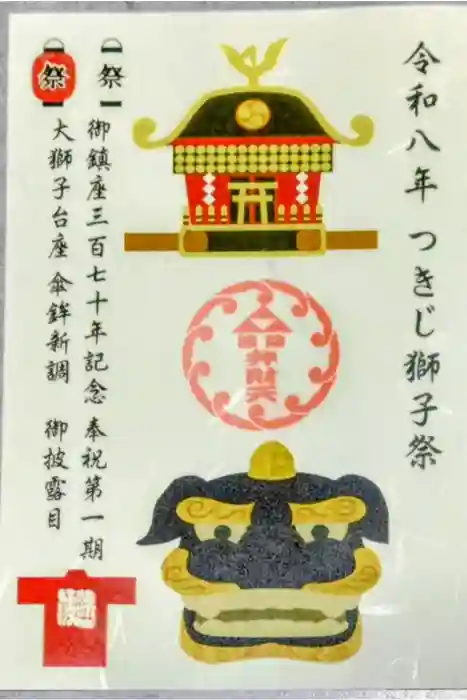 令和八年 つきじ獅子祭
祭
御鎮座三百七十年記念 奉祝第一期
祭
大獅子台座 傘鉾新調 御披露目